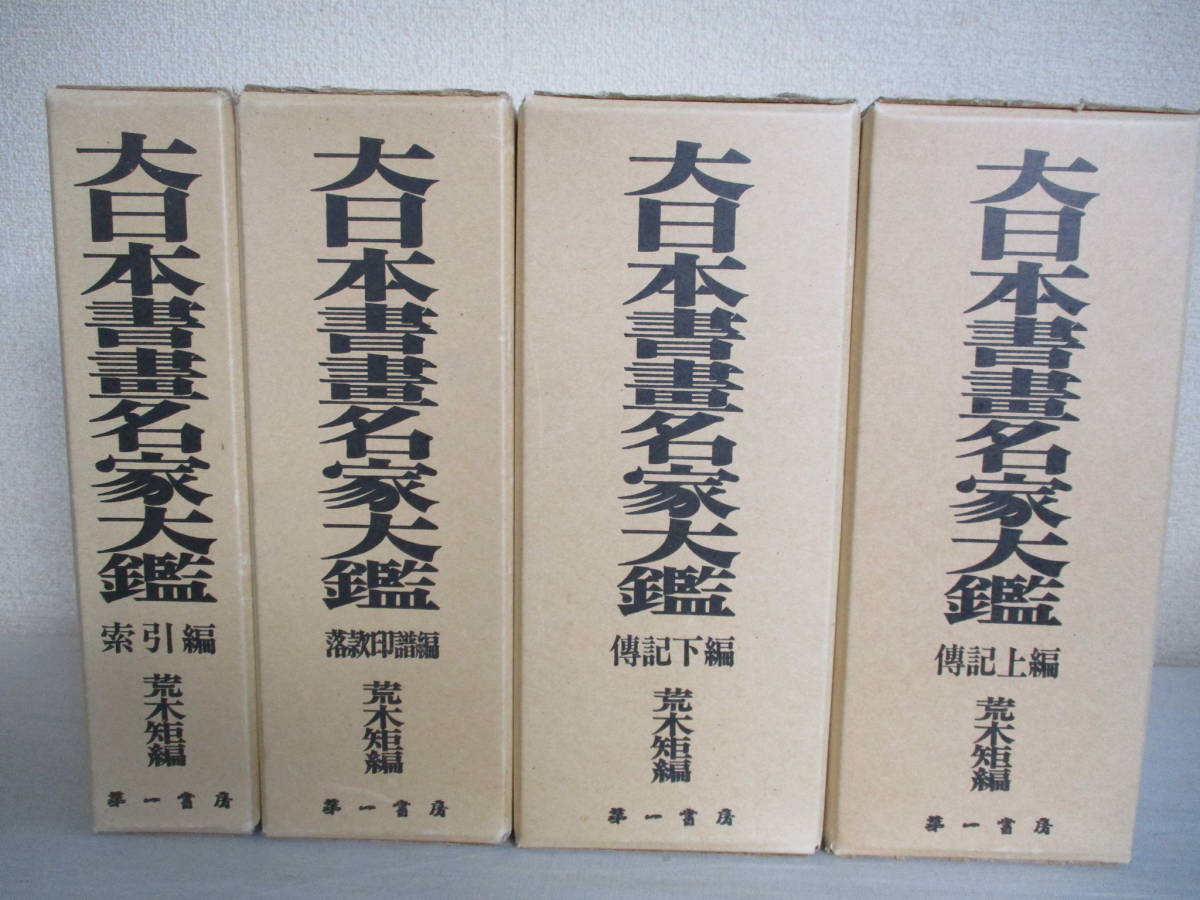 大日本書畫名家大鑑
索引編
荒木矩編
第一書房
大日本書畫名家大鑑
落款印譜編
荒木矩編
第一書房
大日本書畫名家大鑑
傳記下編
荒木矩編
第一書房
大日本書畫名家大鑑
傳記上編
荒木矩編
第一書房